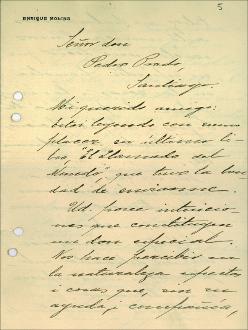 5
ENRIQUE MOLINA
Señor don
Pedro Prado,
Santiago.
Mi querido amigo:
Estoy leyendo con sumo
placer su último li-
bro, "El llamado del
Mundo", que tuvo la bon-
dad de enviarme.
Ud posee intuicio-
nes que constituyen
un don especial.
Nos hace percibir en
la naturaleza aspectos
i cosas que, sin su
ayuda, i compañía,